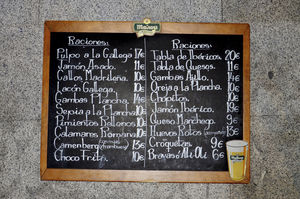 Mahou
Raciones:
Pulpo a la Gallega 17€
Jamón Asado. 11€
Callos Madrileña. 10€
Lacón Gallega. 10€
Gambas Plancha. 14€
Sepia a la Plancha 10€
Pimientos Rellenos 10€
Calamares Romana 10€
Camembert 13€
Choco Frito. 10€
Raciones:
Tabla de Ibéricos. 20€
Tabla de Quesos. 11€
Gambas Ajillo. 14€
Oreja a la Plancha. 10€
Chopitos. 10€
Jamón Ibérico. 19€
Queso Manchego. 9€
Huevos Rotos 13€
Croquetas. 9€
Bravas o Ali Oli 6€
Mahou